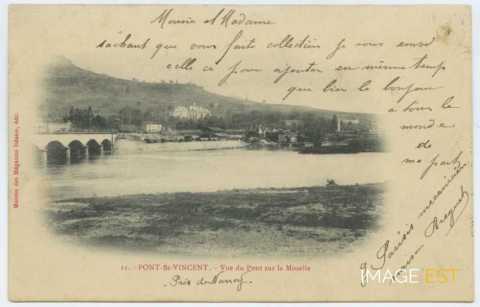 Mousie et Madame
sachant que vous faite collection je vous envoi
celle ca pour ajouter en même temp
que bien le bonjour
a tous le
monde
de
ma part
11. - PONT-St-VINCENT. - Vue du Pont sur la Moselle
Près de Nancy.
IMAGE'EST